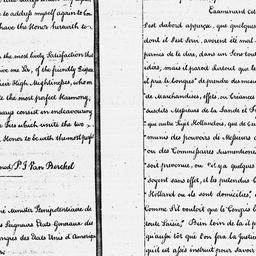 to address myself again to
have the Honor herewith to
the most lively Satisfaction that
give me Sir, of the friendly Dispo
their High Mightinesses, whom
to the most perfect Harmony,
always consist in endeavouring
the Ties which unite the two
Honor to be with the most perfe
P. J. Van Berckel
Ministre Plenipotentiaire de
les Seigneurs Etats Generaux des
Congres des Etats Unis d'Amerique
Examinant
s'est d'abord apperçu, que quelques
dont il s'est servi, avoient été mal
permis de le dire, dans un Sens tout
idées, mais il paroit surtout que le
it pris la longue" de prendre des mesu
de Marchandises, effets, ou Créances
susdits Messieurs de la Lande et F
que autre Sujet Hollandois, que de l'a
munis des pouvoirs de Messieurs
ou des Commissaires surmentionnés
soit prevenue, ou s'il y a quelques
soyent sans effet, si les pretendus
Holland ou ils sont domiciliés."
Comme s'il vouloit que le Congrès
toute Saisie". Bien loin de là il
qu'aussi tôt que l'on fera la Justice
qu'il est assés instruit pour savoir